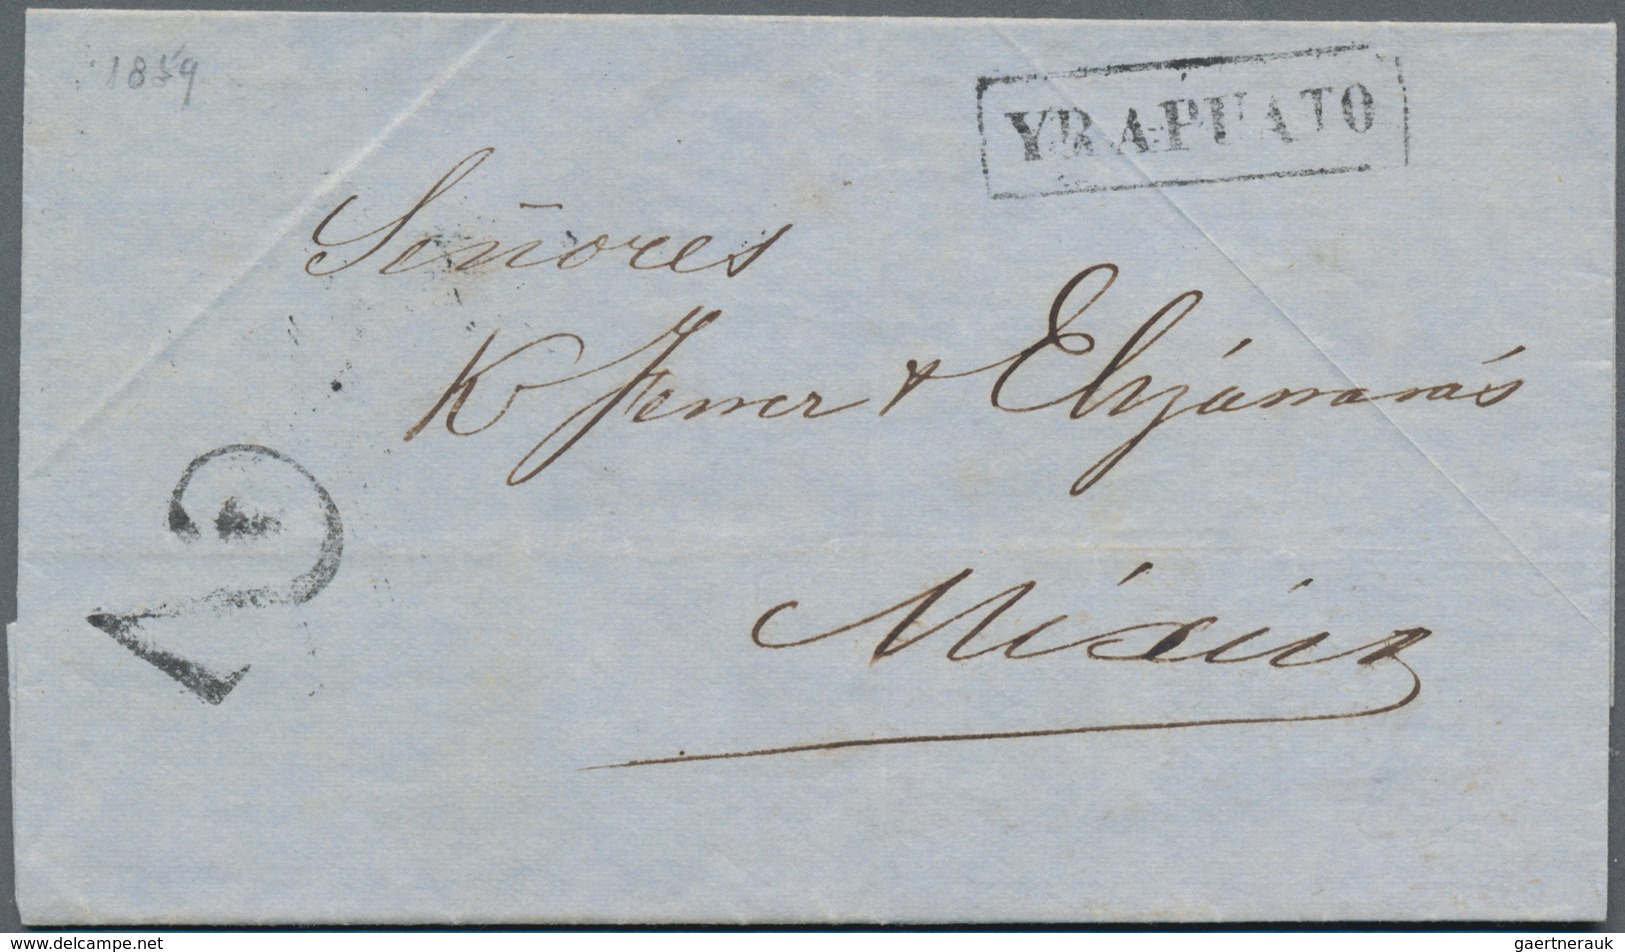 1859
YRAPUATO
Señores
K Jenner &
2
México
www.delcampe.net
gaertnerauk